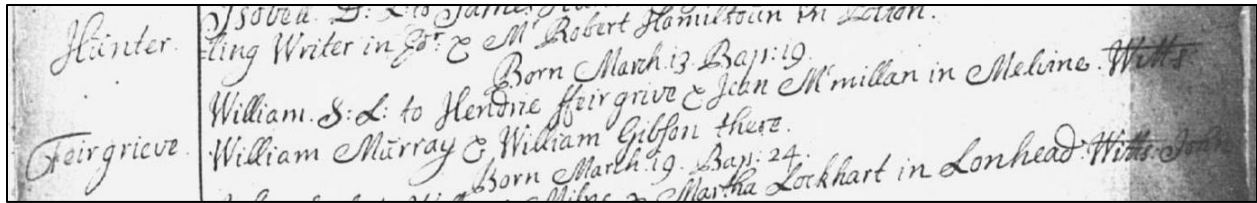 Isobell. D: L: to James
Hunter. ling Writer in Jor. & Mr Robert Hamiltoun in
Born March. 13. Bap: 19.
William. S: L: to Hendrie ffeirgrive & Jean Mcmillan in Melvine. Witts.
Feirgrieve. William Murray & William Gibson there.
Born March. 19. Bap: 24.
Milne & Martha Lockhart in Lonhead. Witts. John